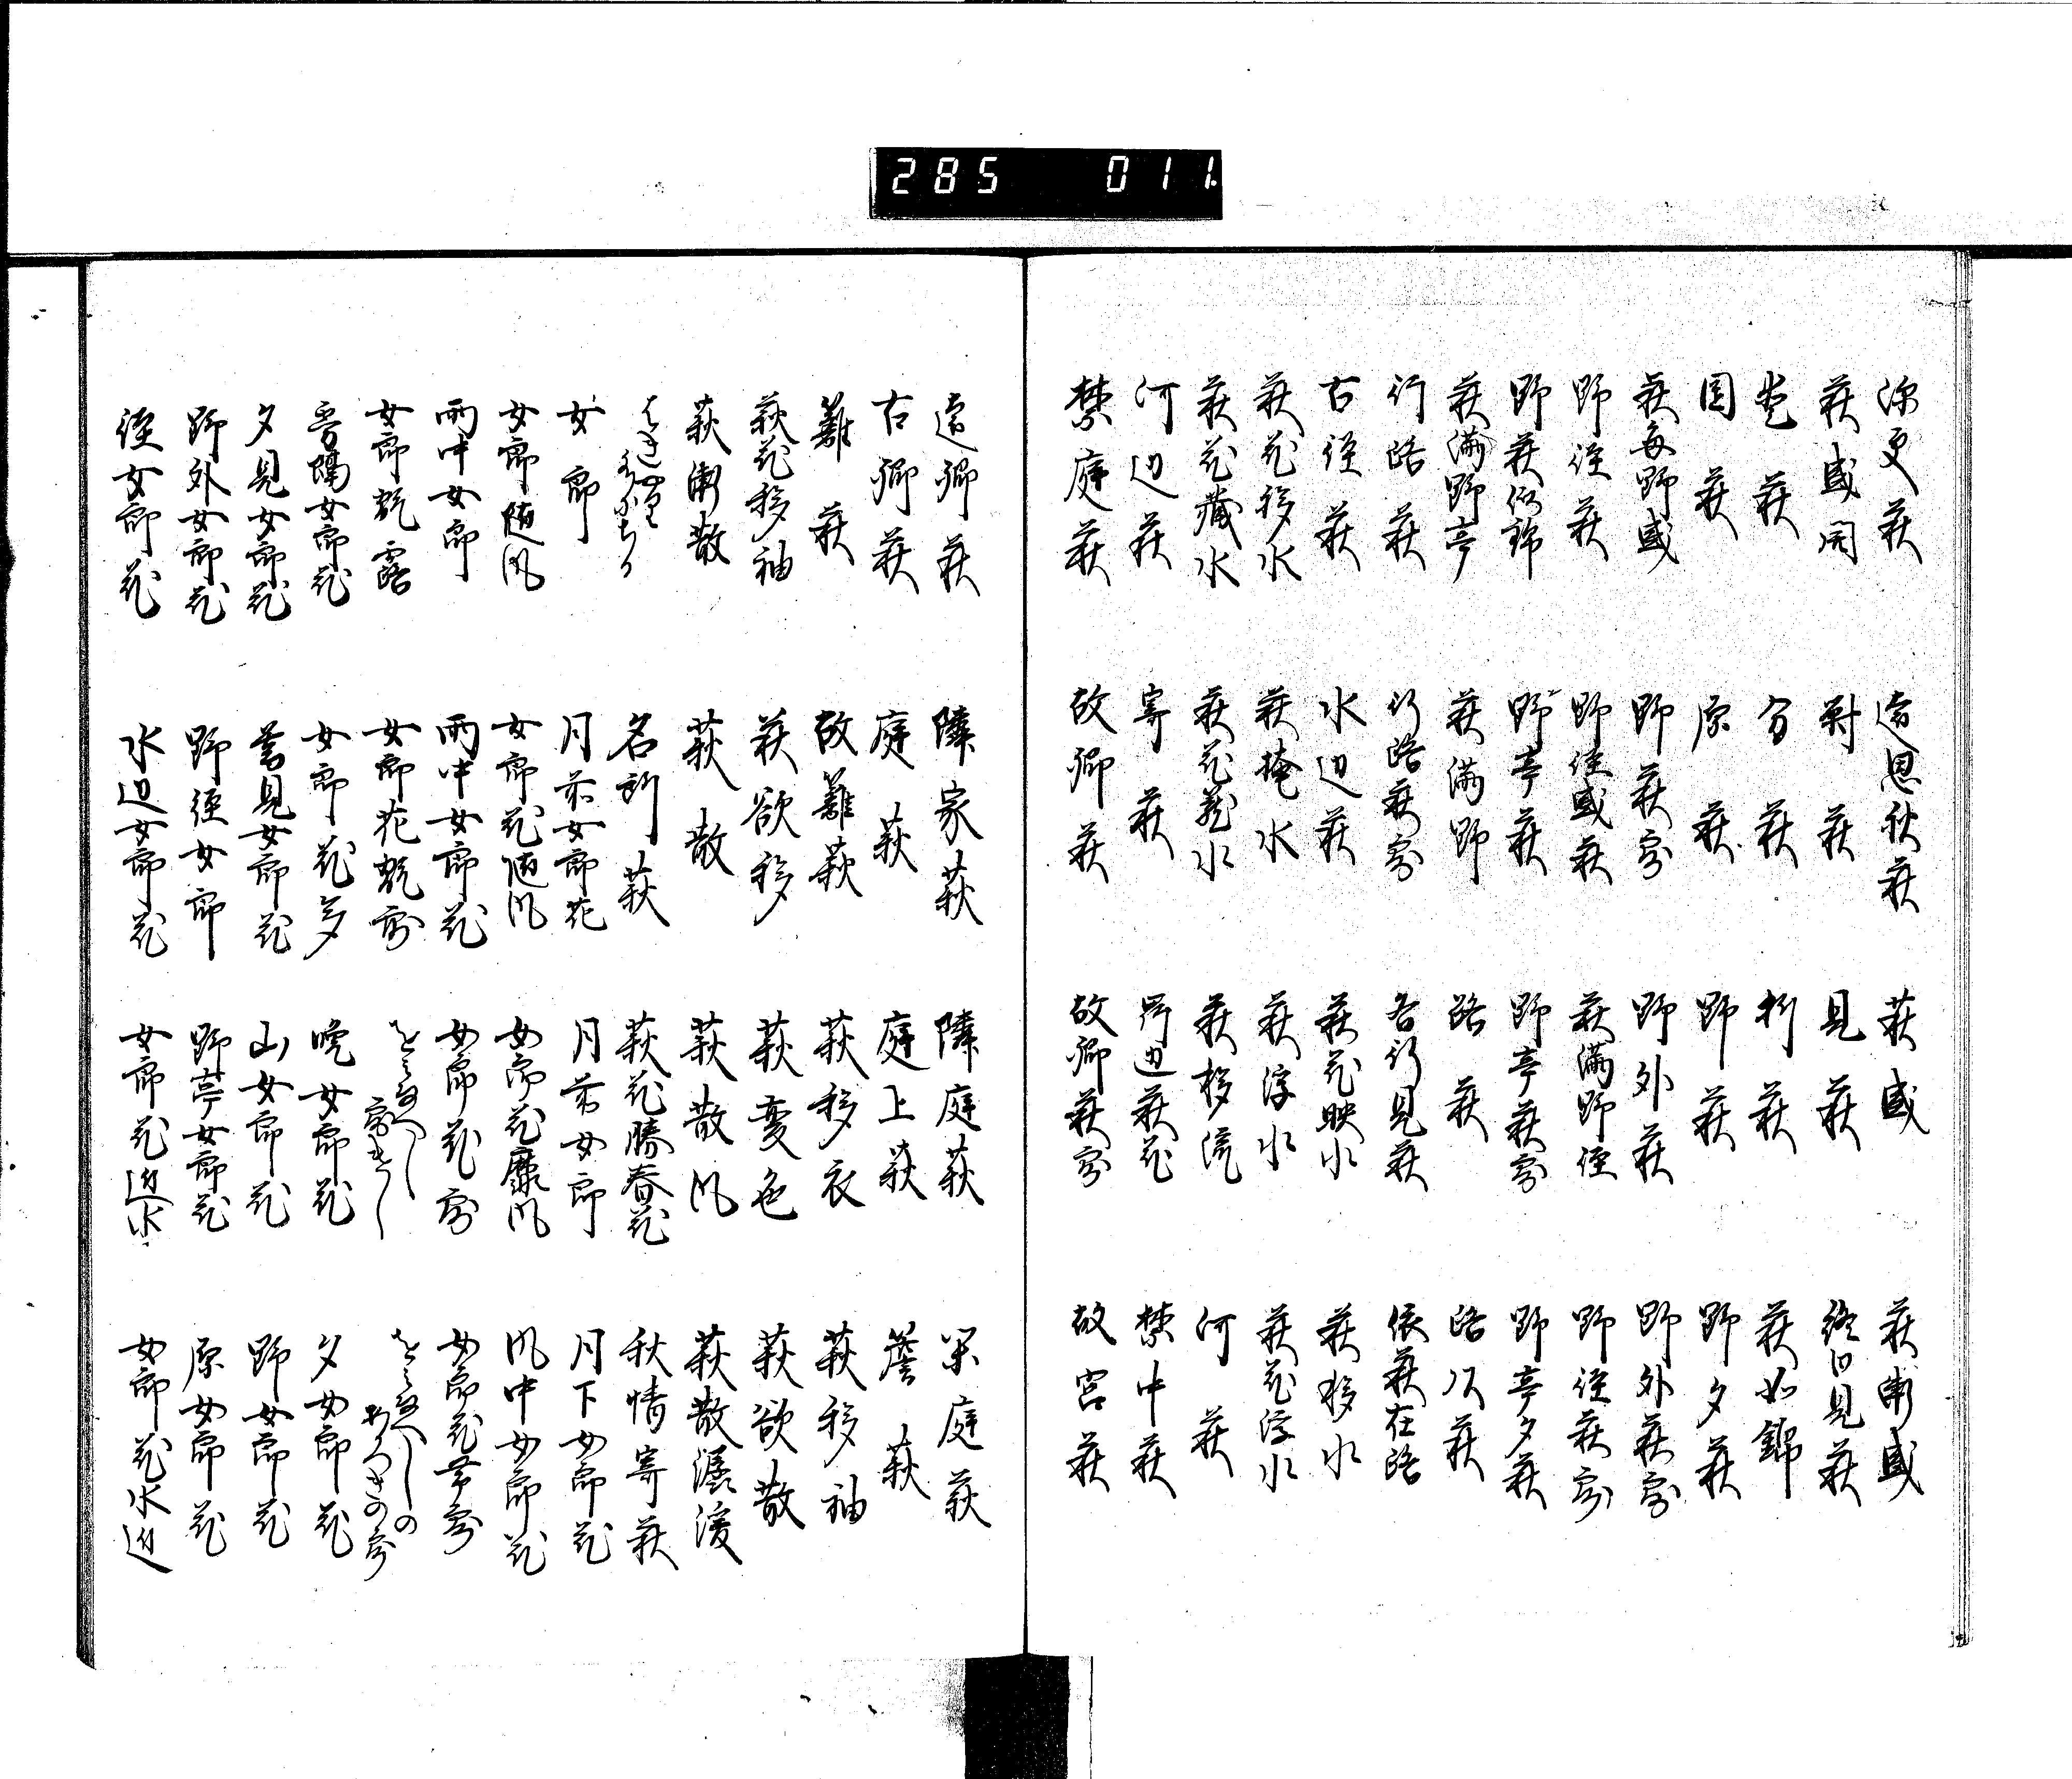 285 011
深更萩 遠思秋萩 萩盛 萩漸盛
萩盛開 対萩 見萩 終日見萩
萩 分萩 折萩 萩如錦
園萩 原萩 野萩 野夕萩
萩毎野盛 野萩露 野外萩 野外萩露
野径萩 野径盛萩 萩満野径 野径萩露
野萩似錦 野亭萩 野亭萩露 野亭夕萩
萩満野亭 萩満野 路萩 路次萩
行路萩 行路萩露 各行見萩 依萩在路
古径萩 水辺萩 萩花映水 萩移水
萩花移水 萩掩水 萩浮水 萩花浮水
萩花蔵水 萩花 水 萩移流 河萩
河辺萩 寄萩 岸辺萩花 禁中萩
禁庭萩 故郷萩 故郷萩露 故宮萩
遠郷萩 隣家萩 隣庭萩 閑庭萩
古郷萩 庭萩 庭上萩 簷萩
籬萩 故籬萩 萩移衣 萩移袖
萩花移袖 萩欲移 萩変色 萩欲散
萩漸散 萩散 萩散風 萩散潺湲
名所萩 萩花勝春花 秋情寄萩
女郎 月前女郎花 月前女郎 月下女郎花
女郎随風 女郎花随風 女郎花靡風 風中女郎花
雨中女郎 雨中女郎花 女郎花露 女郎花帯露
女郎靚露 女郎花靚露 をみなへし露
女郎花 女郎花多 晩女郎花 夕女郎花
夕見女郎花 暮見女郎花 山女郎花 野女郎花
野外女郎花 野径女郎 野亭女郎花 原女郎花
径女郎花 水辺女郎花 女郎花近水 女郎花水辺